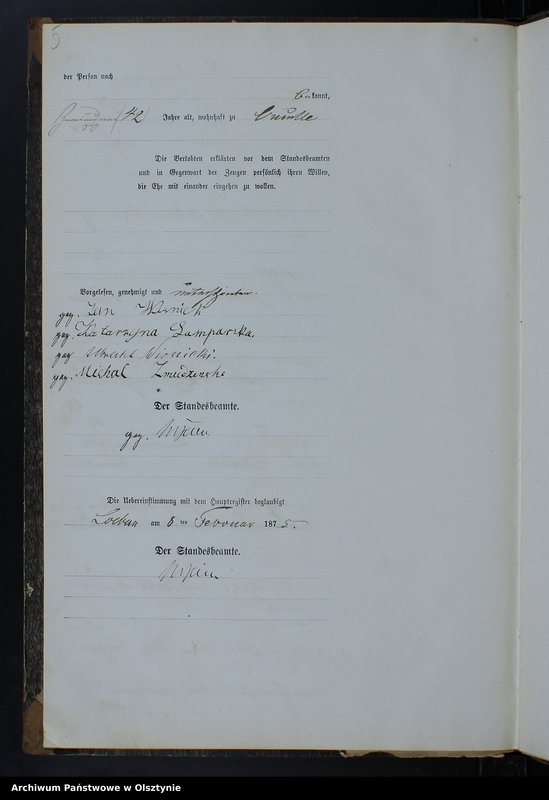 5
der Person nach
bekannt,
(42) Jahre alt, wohnhaft zu
Die Verlobten erklärten vor dem Standesbeamten
und in Gegenwart der Zeugen persönlich ihren Willen,
die Ehe mit einander eingehen zu wollen.
Vorgelesen, genehmigt und unterschrieben.
gez. Jan
gez. Katarzyna Lamparska.
gez.
gez. Michal
Der Standesbeamte.
gez.
Die Uebereinstimmung mit dem Hauptregister beglaubigt
Loebau am 8 ten Februar 1875.
Der Standesbeamte.
Archiwum Państwowe w Olsztynie